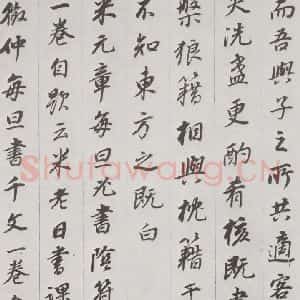 而吾與子之所共適客
笑洗盞更酌肴核既
槃狼籍相與枕籍
不知東方之既白
米元章每日書陰符
一卷自題云米老日書課
仲每旦書千文一卷
Shufawang.CN